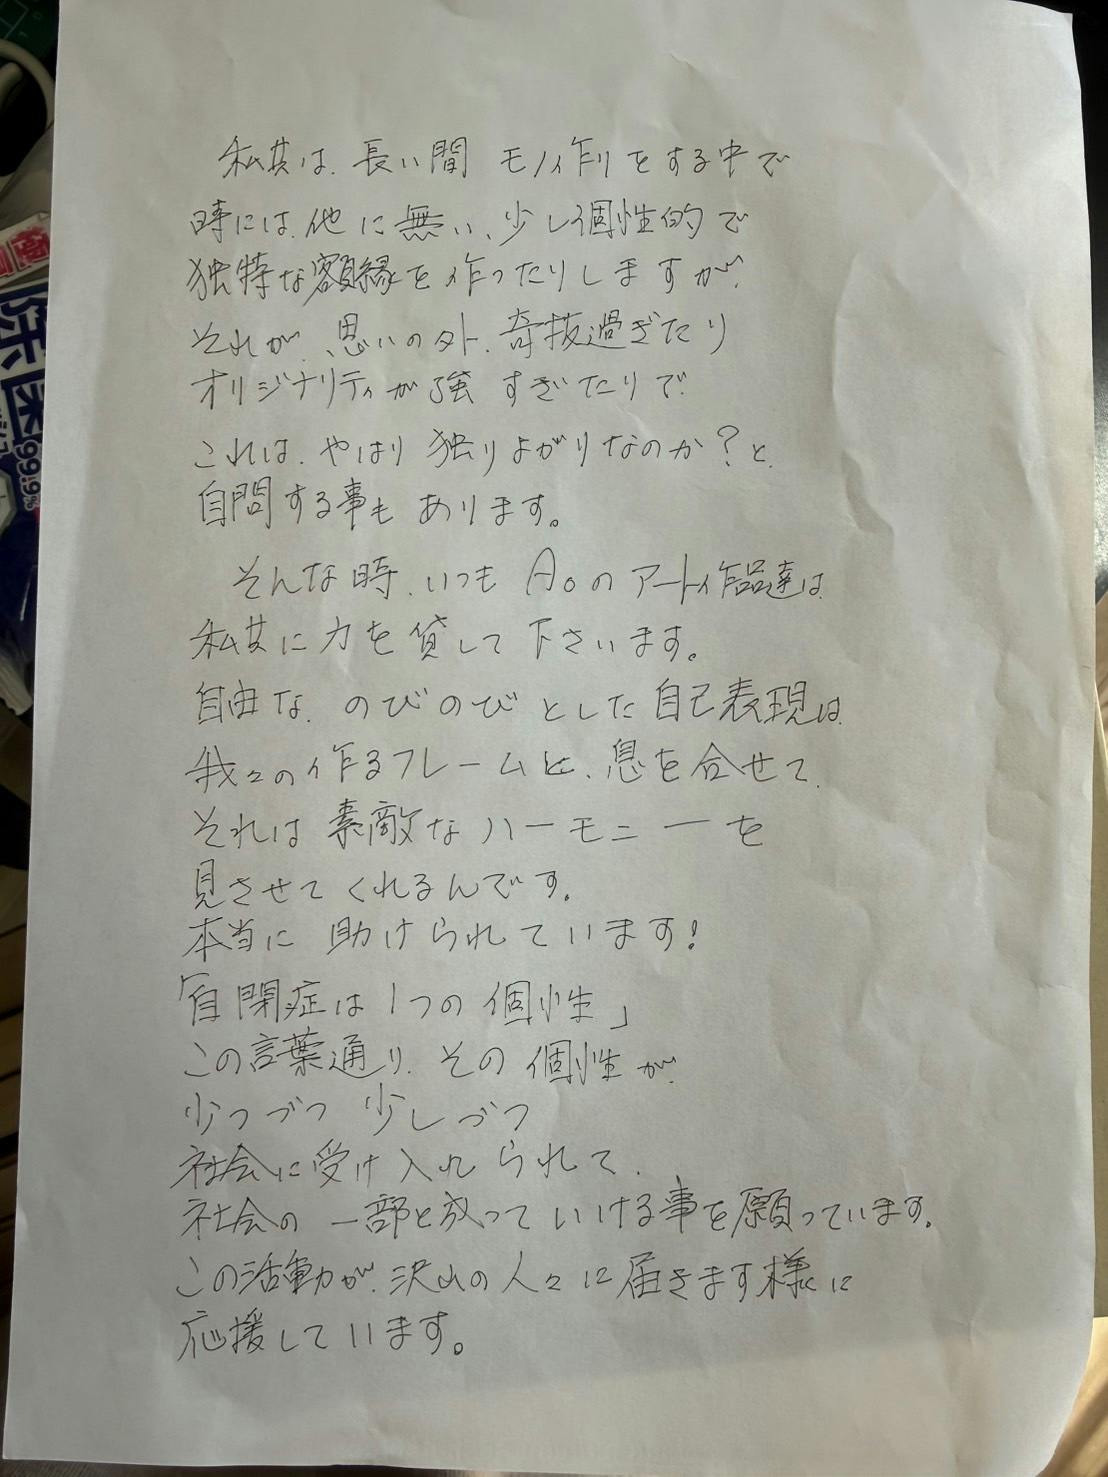 私共は、長い間 モノ作りをする中で
時には、他に無い、少し個性的で
独特な額縁を作ったりしますが、
それが、思いの外、奇抜過ぎたり
オリジナリティが強すぎたりで
これは、やはり独りよがりなのか?と、
自問する事もあります。
そんな時、いつも A。のアート作品達は
私共に力を貸して下さいます。
自由な、のびのびとした自己表現は
我々の作るフレームと、息を合せて、
それは素敵なハーモニーを
見させてくれるんです。
本当に助けられています!
「自閉症は1つの個性」
この言葉通り、その個性が、
少つづつ 少しづつ
社会に受け入れられて、
社会の一部と成っていける事を願っています。
この活動が、沢山の人々に届きます様に
応援しています。
除菌
99.9%